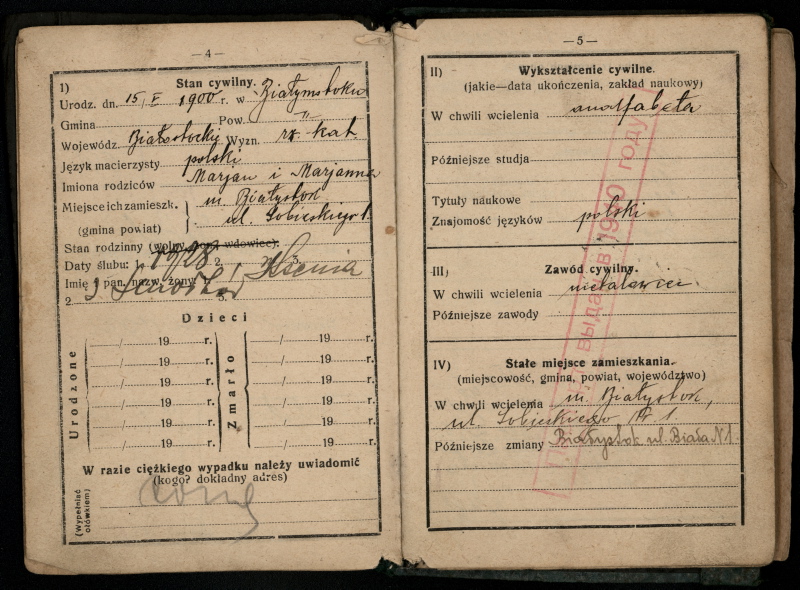 — 4 —
1) Stan cywilny.
Urodz. dn. 15/I 1900 r. w Białymstoku
Gmina Pow. "
Wojewódz. Białostockie Wyzn. rz. kat.
Język macierzysty polski
Imiona rodziców Marjan i Marjanna
Miejsce ich zamieszk. m. Białystok
(gmina powiat) ul. Sobieskiego 1
Stan rodzinny (wolny, żona wdowiec).
Daty ślubu: 1928 2. 3.
Imię i pan. nazw. żony: Ksenia
2. 3.
Dzieci
Urodzone
Zmarło
/ 19 r. / 19 r.
/ 19 r. / 19 r.
/ 19 r. / 19 r.
/ 19 r. / 19 r.
/ 19 r. / 19 r.
/ 19 r. / 19 r.
W razie ciężkiego wypadku należy uwiadomić
(kogo? dokładny adres)
(Wypełniać ołówkiem)
żonę
— 5 —
II) Wykształcenie cywilne.
(jakie—data ukończenia, zakład naukowy)
W chwili wcielenia analfabeta
Późniejsze studja
Tytuły naukowe
Znajomość języków polski
III) Zawód cywilny.
W chwili wcielenia
Późniejsze zawody
IV) Stałe miejsce zamieszkania.
(miejscowość, gmina, powiat, województwo)
W chwili wcielenia m. Białystok,
ul. Sobieskiego № 1
Późniejsze zmiany Białystok ul. Biała N 1.
выдан в 1940 году